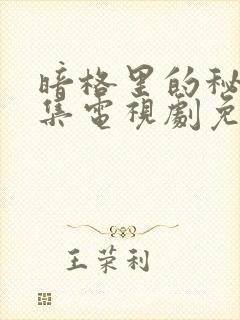 暗格里的秘
集電視劇免
王荣利